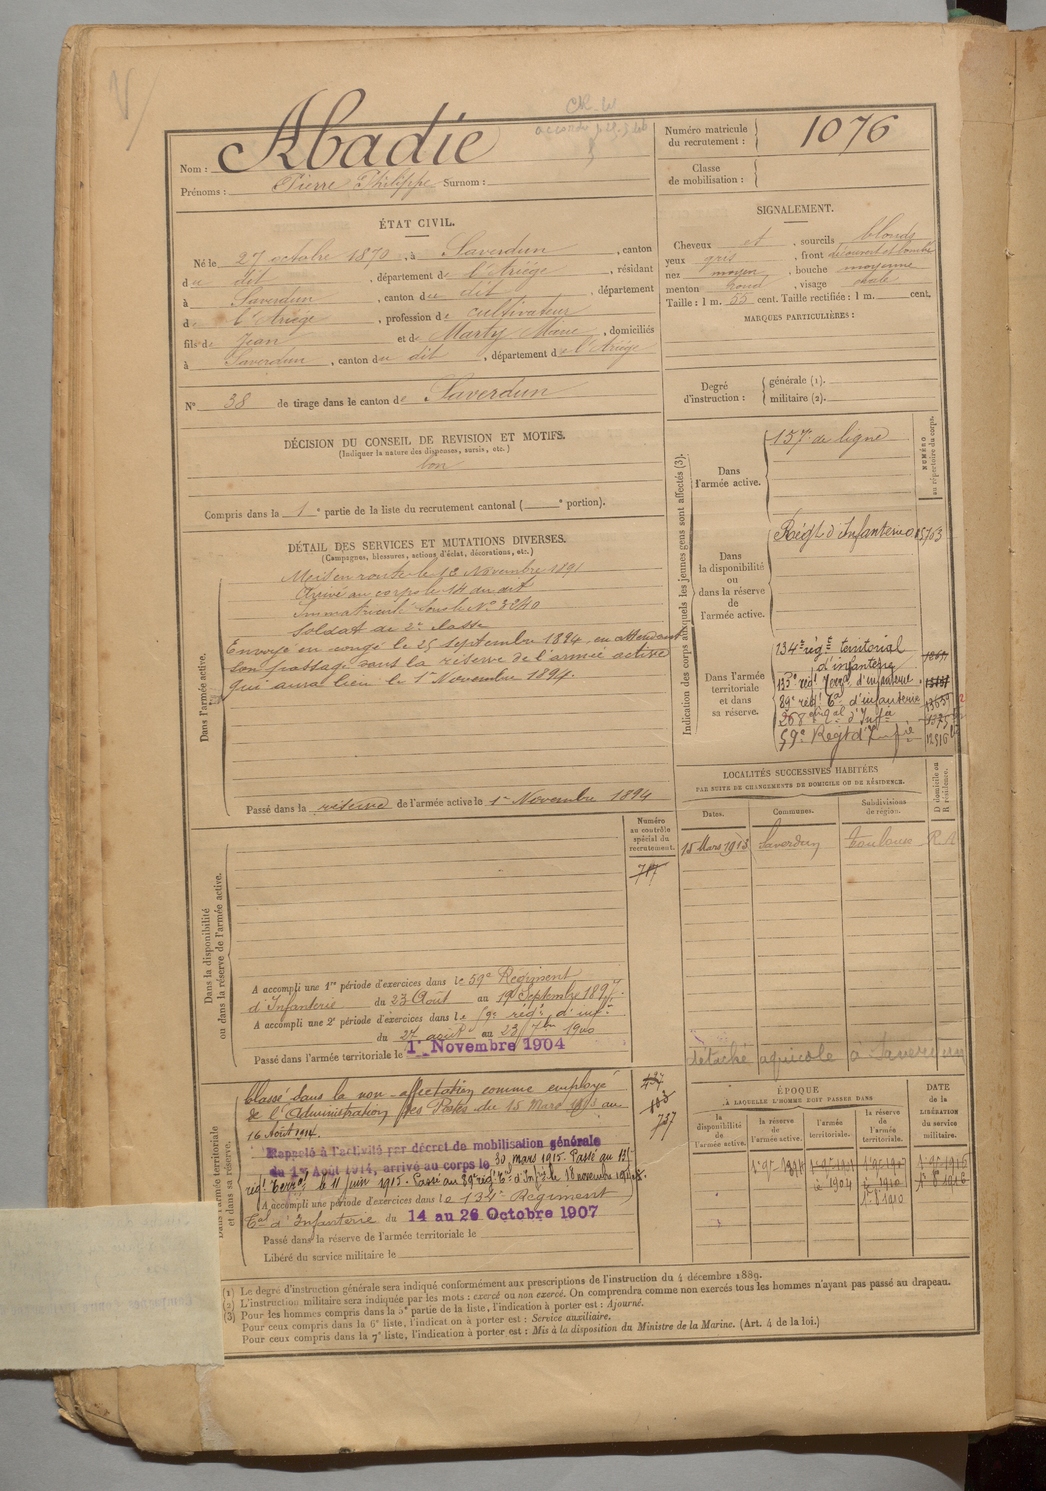 Abadie
Nom :
Prénoms : Pierre Philippe Surnom :
Numéro matricule
du recrutement : 1076
Classe
de mobilisation :
ÉTAT CIVIL.
Né le 27 octobre 1870, à Saverdun, canton
du dit, département de l'Ariège, résidant
à Saverdun, canton du dit, département
de l'Ariège, profession de cultivateur
fils de Jean et de Marty Marie, domiciliés
à Saverdun, canton du dit, département de l'Ariège
N° 38 de tirage dans le canton de Saverdun
SIGNALEMENT.
Cheveux et sourcils blonds
yeux gris, front découvert et bombé
nez moyen, bouche moyenne
menton rond, visage ovale
Taille : 1 m. 55 cent. Taille rectifiée : 1 m. cent.
MARQUES PARTICULIÈRES :
Degré
d'instruction :
générale (1).
militaire (2).
DÉCISION DU CONSEIL DE REVISION ET MOTIFS.
(Indiquer la nature des dispenses, sursis, etc.)
bon
Compris dans la 1e partie de la liste du recrutement cantonal ( e portion).
DÉTAIL DES SERVICES ET MUTATIONS DIVERSES.
(Campagnes, blessures, actions d'éclat, décorations, etc.)
Dans l'armée active.
Mis en route le 12 Novembre 1891
Arrivé au corps le 14 du dit
Immatriculé sous le N° 3240
Soldat de 2e classe
Envoyé en congé le 25 septembre 1894, en attendant
son passage dans la réserve de l'armée active
qui aura lieu le 1er Novembre 1894.
Passé dans la réserve de l'armée active le 1er Novembre 1894
Indication des corps auxquels les jeunes gens sont affectés (3).
NUMÉRO
au répertoire du corps.
Dans
l'armée active.
157e de ligne
Dans
la disponibilité
ou
dans la réserve
de
l'armée active.
Régt d'Infanterie 05703
Dans l'armée
territoriale
et dans
sa réserve.
134e régt territorial
d'infanterie
133e régt Terral d'infanterie
89e régt Tal d'infanterie 13659
59e Regt d'Infie 12516
LOCALITÉS SUCCESSIVES HABITÉES
PAR SUITE DE CHANGEMENTS DE DOMICILE OU DE RÉSIDENCE.
Dates.
Communes.
Subdivisions
de région.
D domicile ou
R résidence.
15 Mars 1913 Saverdun Toulouse R
détaché agricole à Saverdun
Numéro
au contrôle
spécial du
recrutement.
717
Dans la disponibilité
ou dans la réserve de l'armée active.
A accompli une 1re période d'exercices dans le 59e Regiment
d'Infanterie du 23 Août au 19 Septembre 1897.
A accompli une 2e période d'exercices dans le 59e régt d'infie
du 27 août au 23 7bre 1900
Passé dans l'armée territoriale le 1er Novembre 1904
Dans l'armée territoriale
et dans sa réserve.
Classé dans la non-affectation comme employé
de l'Administration des Postes du 15 Mars 1913 au
16 Août 1914.
Rappelé à l'activité par décret de mobilisation générale
du 1er Août 1914, arrivé au corps le 30 mars 1915. Passé au 133e
régt Terral le 11 juin 1915. Passé au 89e régt Tal d'Infie le 18 novembre 1915.
A accompli une période d'exercices dans le 134e Régiment
Tal d'Infanterie du 14 au 26 Octobre 1907
Passé dans la réserve de l'armée territoriale le
Libéré du service militaire le
757
ÉPOQUE
À LAQUELLE L'HOMME DOIT PASSER DANS
la
disponibilité
de
l'armée active.
la réserve
de
l'armée active.
l'armée
territoriale.
la réserve
de
l'armée
territoriale.
DATE
de la
LIBÉRATION
du service
militaire.
1er 9bre 1894
(1) Le degré d'instruction générale sera indiqué conformément aux prescriptions de l'instruction du 4 décembre 1889.
(2) L'instruction militaire sera indiquée par les mots : exercé ou non exercé. On comprendra comme non exercés tous les hommes n'ayant pas passé au drapeau.
(3) Pour les hommes compris dans la 5e partie de la liste, l'indication à porter est : Ajourné.
Pour ceux compris dans la 6e liste, l'indication à porter est : Service auxiliaire.
Pour ceux compris dans la 7e liste, l'indication à porter est : Mis à la disposition du Ministre de la Marine. (Art. 4 de la loi.)